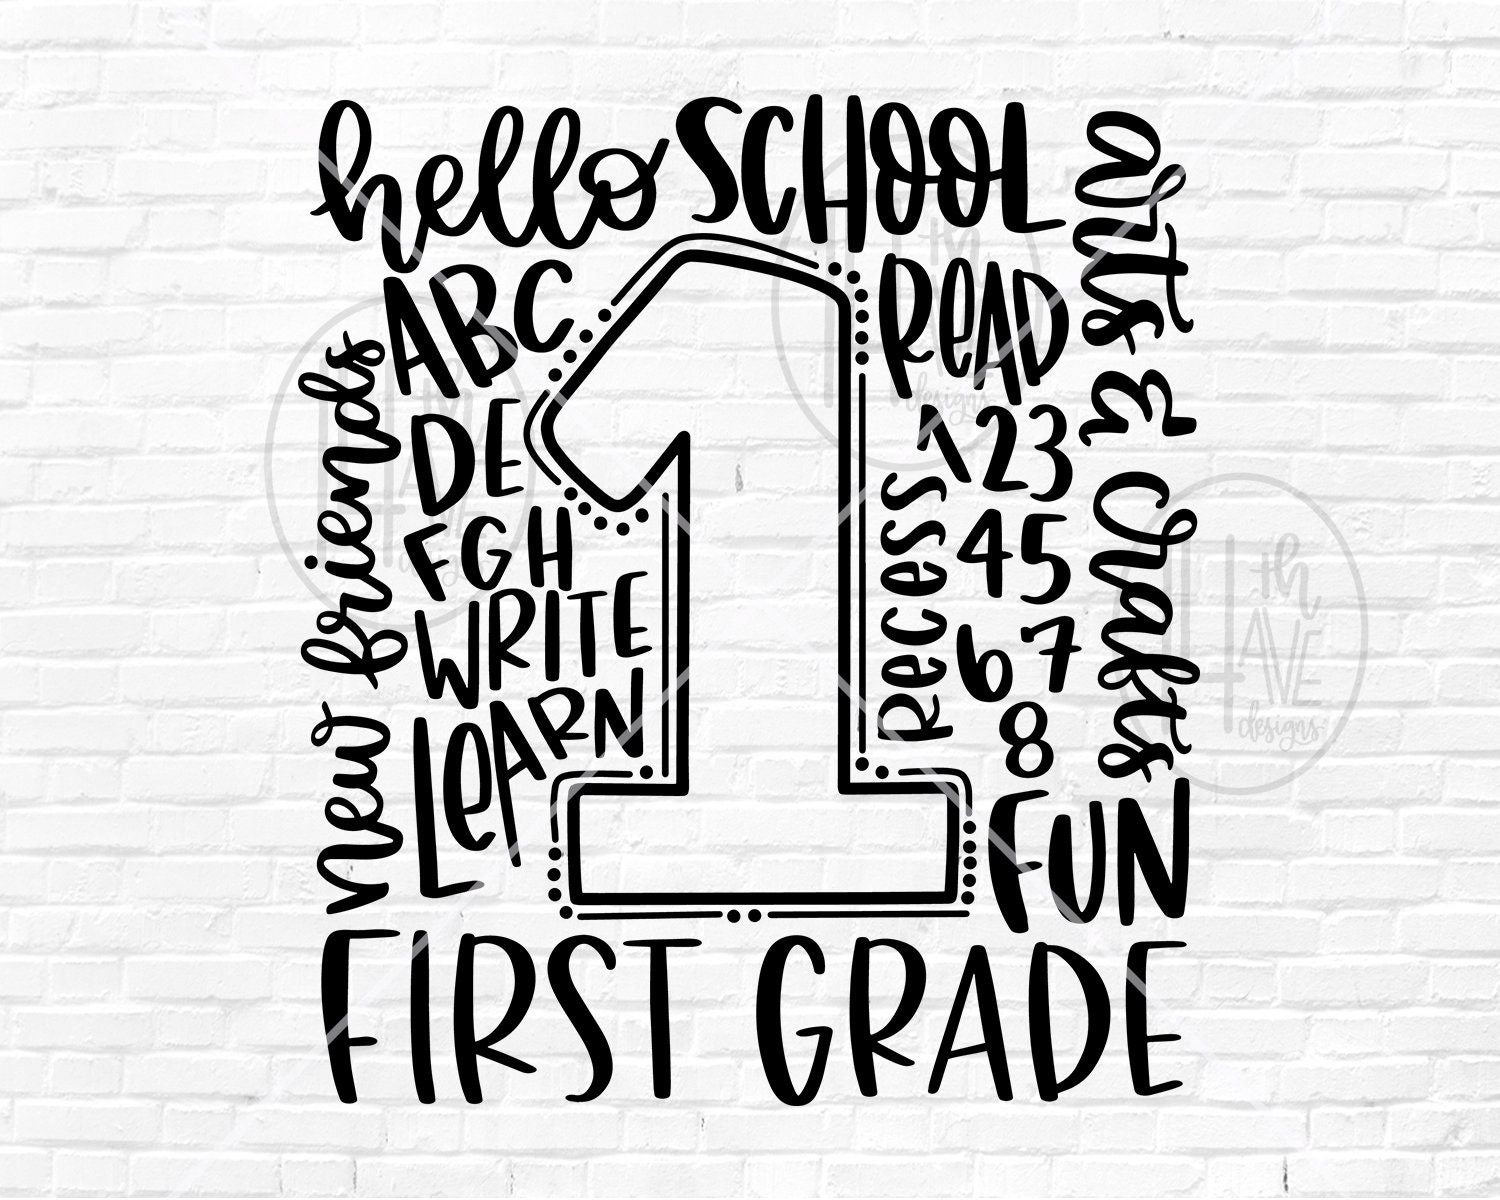 hello SCHOOL
arts & crafts
ABC
DE
FGH
WRITE
LEARN
new friends
1
READ
123
45
67
8
recess
FUN
FIRST GRADE
4th AVE designs
4th AVE designs
4th AVE designs